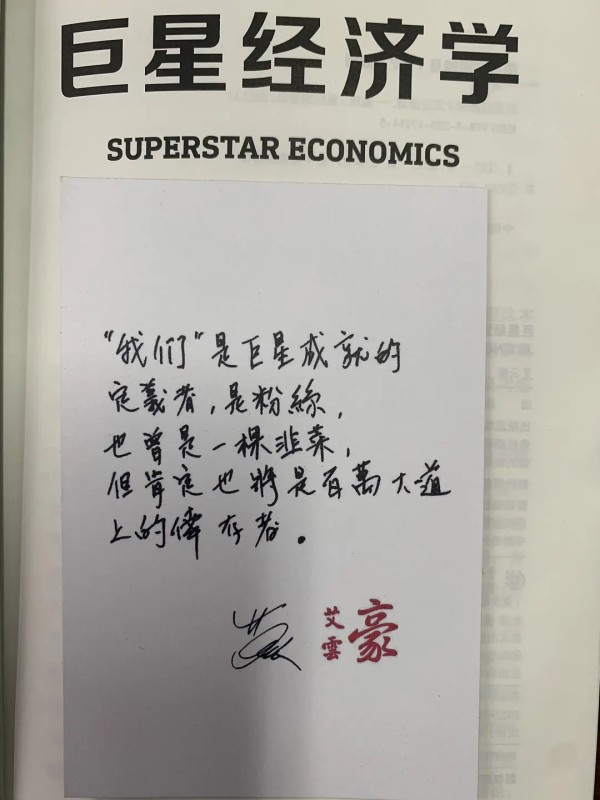 巨星经济学
SUPERSTAR ECONOMICS
“我们”是巨星成就的
定義者,是粉絲,
也曾是一棵韭菜,
但肯定也將是百萬大道
上的倖存者。
艾雲豪